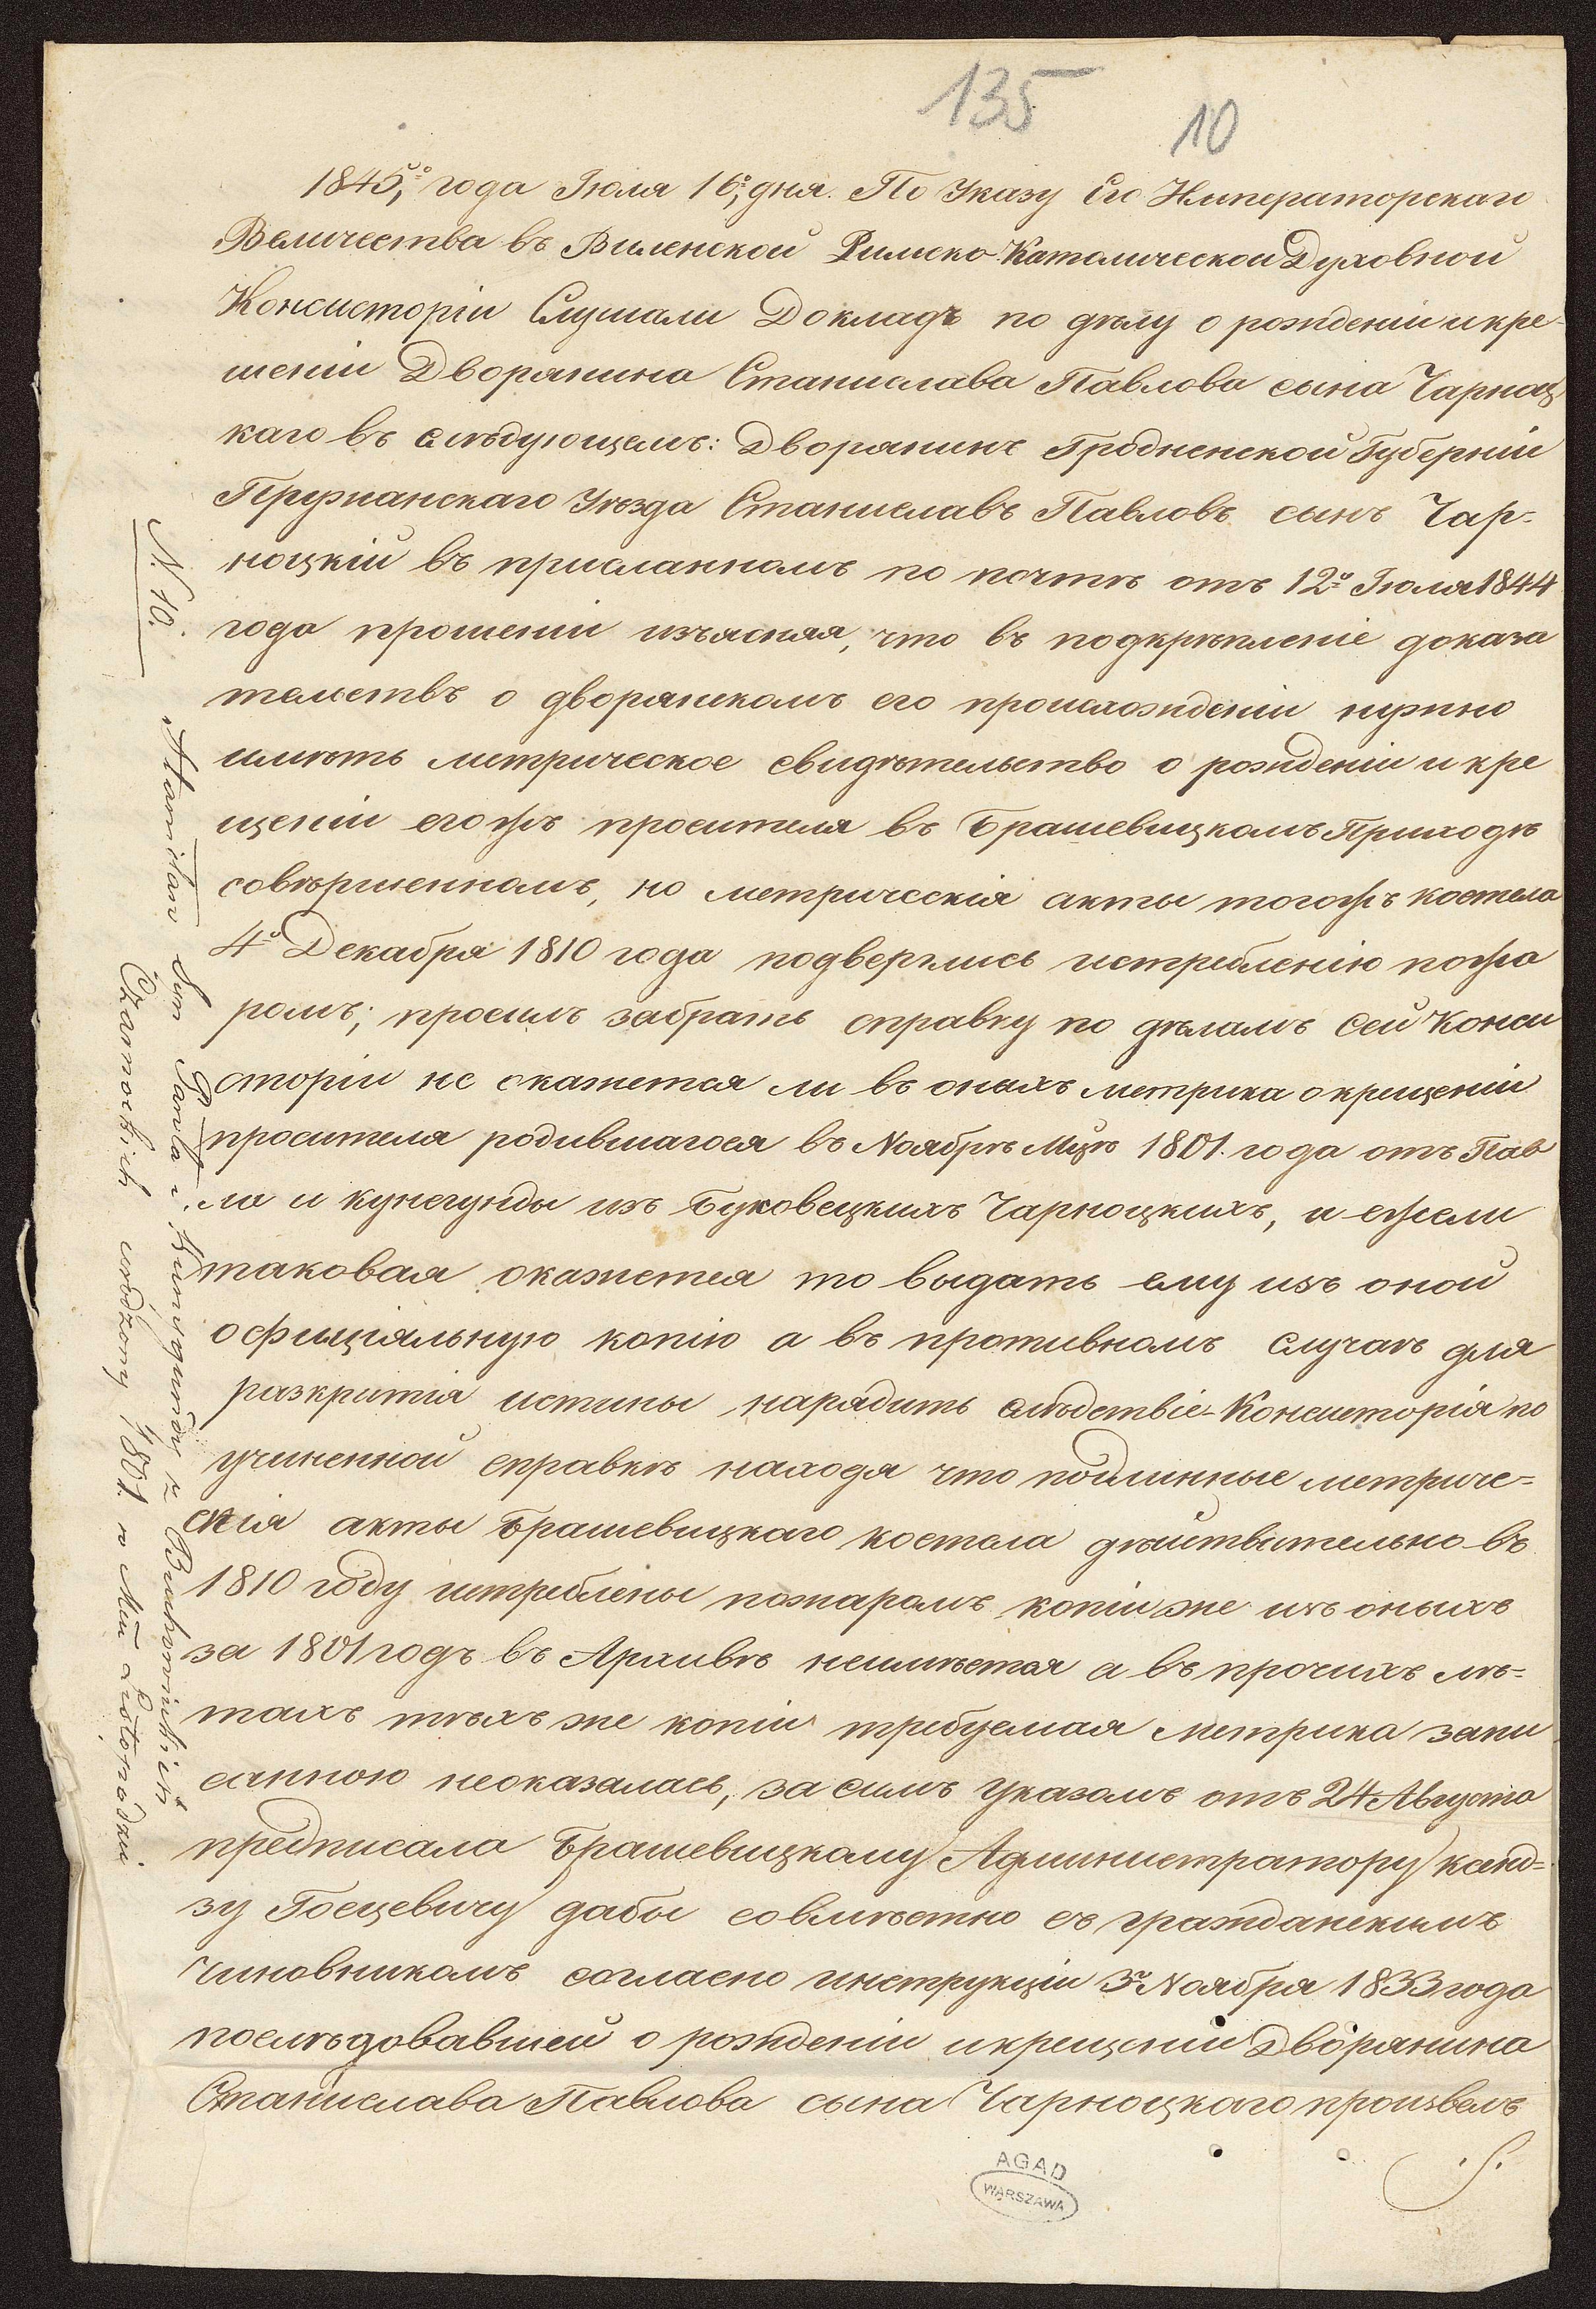 135
10
1845,го года Іюля 16,го дня. По Указу Его Императорскаго
Величества въ Виленской Римско-Католической Духовной
Консисторіи Слушали Докладъ по дѣлу о рожденіи и кре-
щеніи Дворянина Станислава Павлова сына Чарноц
каго въ слѣдующемъ: Дворянинъ Гродненской Губерніи
Пружанскаго Уѣзда Станиславъ Павловъ сынъ Чар-
ноцкій въ присланномъ по почтѣ отъ 12го Іюля 1844
года прошеніи изъясняя, что въ подкрѣпленіе доказа
тельствъ о дворянскомъ его происхожденіи нужно
имѣть метрическое свидѣтельство о рожденіи и кре
щеніи егожъ просителя въ Брашевицкомъ Приходѣ
совѣршенномъ, но метрическія акты тогожъ костела
4го Декабря 1810 года подверглись истребленію пожа
ромъ; просилъ забрать справку по дѣламъ сей Конси
сторіи не окажется ли въ оныхъ метрика о крещеніи
просителя родившагося въ Ноябрѣ Мцѣ 1801. года отъ Пав
ла и Кунегунды изъ Буковецкихъ Чарноцкихъ, и ежели
таковая окажется то выдать ему изъ оной
официяльную копію а въ противномъ случаѣ для
разкритія истины нарядить слѣдствіе - Консисторія по
учиненной справкѣ находя что подлинные метриче-
скія акты Брашевицкаго костела дѣйствительно въ
1810 году истреблены пожаромъ копіи же изъ оныхъ
за 1801 годъ въ Архивѣ неимѣется а въ прочихъ лѣ-
тахъ тѣхъ же копіи требуемая метрика запи
санною неоказалась, за симъ указомъ отъ 24 Августа
предписала Брашевицкому Администратору ксен-
зу Гоецевичу дабы совмѣстно съ гражданскимъ
чиновникомъ согласно инструкціи 3го Ноября 1833 года
послѣдовавшей о рожденіи и крещеніи Дворянина
Станислава Павлова сына Чарноцкаго произвелъ
N. 10.
Stanisław Syn Pawła i Kunegundy z Bukowieckich
Czarnockich urodzony 1801. r.
AGAD
WARSZAWA